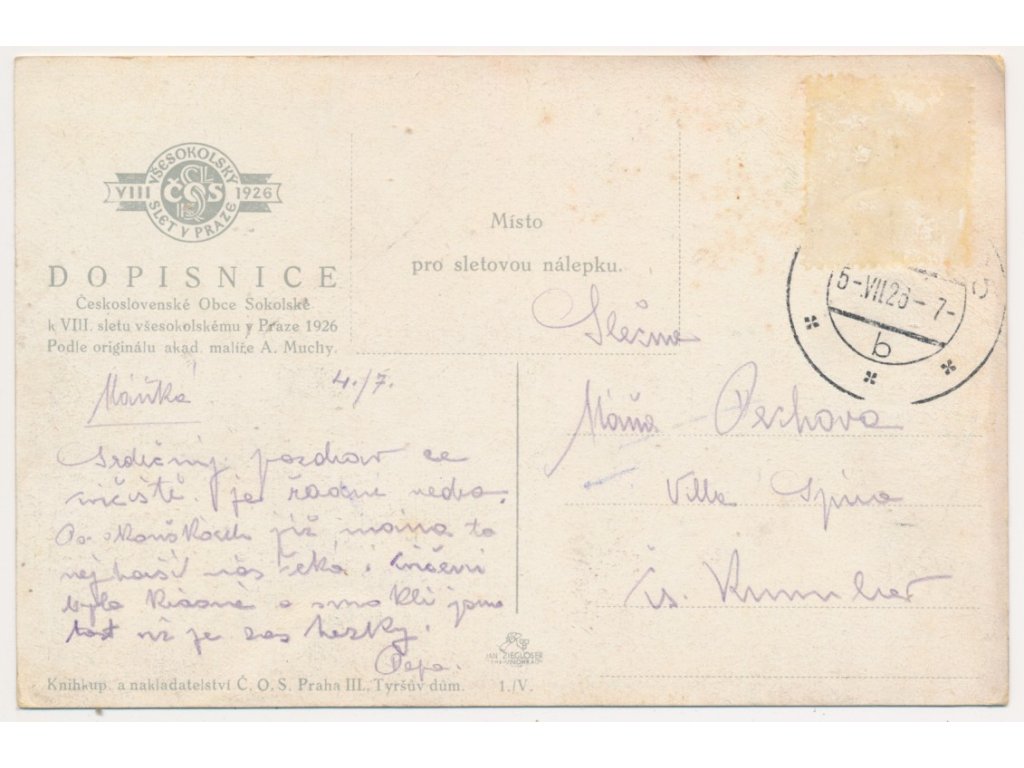 VŠESOKOLSKÝ
VIII ČOS 1926
SLET V PRAZE
DOPISNICE
Československé Obce Sokolské
k VIII. sletu všesokolskému v Praze 1926
Podle originálu akad. malíře A. Muchy.
Místo
pro sletovou nálepku.
5-VII.26-7-
b
Slečna
Máňa Pechova
Villa
Čs.
4./7.
Srdečný pozdrav ze
cvičiště. je
Po zkouškách již máme to
nejhorší nás čeká. cvičení
bylo krásné a smokli jsme
dost už je zas hezky.
Pepa.
JAN ZIEGLOSER
Knihkup. a nakladatelství Č. O. S. Praha III., Tyršův dům. 1./V.